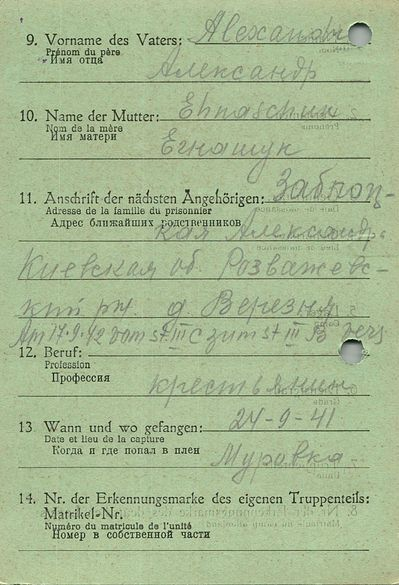 9. Vorname des Vaters: Alexandr
Prénom du père
Имя отца
Александр
10. Name der Mutter: Ehnaschuk
Nom de la mère
Имя матери
Егнашук
11. Anschrift der nächsten Angehörigen:
Adresse de la famille du prisonnier
Адрес ближайших родственников
кая Александр.
Киевская об. Розважевс-
кий рн. д. Березня
Am 17-9-42 vom St. III C zum St III B vers
12. Beruf:
Profession
Профессия
крестьянин
13 Wann und wo gefangen: 24-9-41
Date et lieu de la capture
Когда и где попал в плен
Муравка
14. Nr. der Erkennungsmarke des eigenen Truppenteils:
Matrikel-Nr.
Numéro du matricule de l'unité
Номер в собственной части